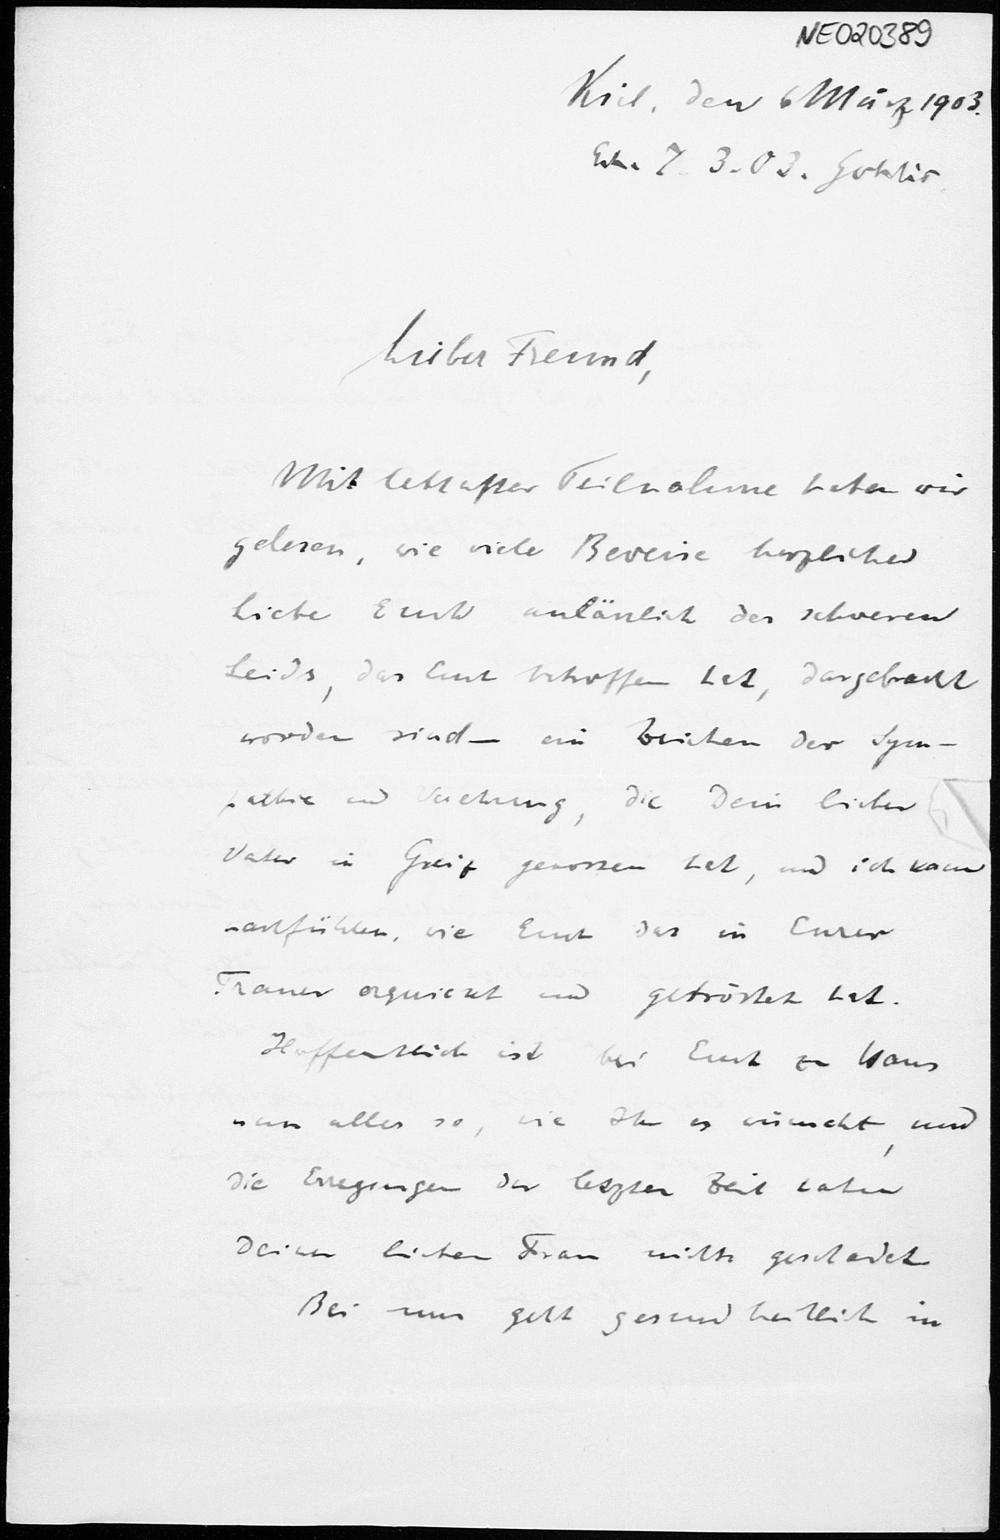 NE020389
Kiel, den 6 März 1903.
Erh. 7. 3. 03. Gohlis
Lieber Freund,
Mit lebhafter Teilnahme haben wir
gelesen, wie viele Beweise herzlicher
Liebe Euch anläßlich des schweren
Leids, das Euch betroffen hat, dargebracht
worden sind – ein Zeichen der Sym-
pathie und Verehrung, die Dein lieber
Vater in Greiz genossen hat, und ich kann
nachfühlen, wie Euch das in Eurer
Trauer erquickt und getröstet hat.
Hoffentlich ist bei Euch zu Haus
nun alles so, wie Ihr es wünscht, und
die Erregungen der letzten Zeit haben
Deiner lieben Frau nichts geschadet
Bei uns geht gesundheitlich in